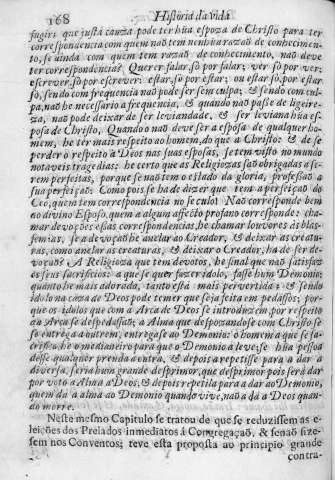 168 Historia da vida
fugir: que justa cauza pode ter hũa espoza de Christo para ter
correspondencia com quem naõ tem nenhũa razaõ de conhecimen-
to, se ainda com quem tem razaõ de conhecimento, naõ deve
ter correspondencia? Quer er falar, só por falar; ver só por ver;
escrever, só por escrever: estar, só por estar; ou estar só, por estar
só, sendo com frequencia naõ pode ser sem culpa; & sendo sem cul-
pa, naõ he necessario a frequencia, & quando naõ passe de ligeire-
za, naõ pode deixar de ser leviandade, & ser leviana hũa es-
posa de Christo, Quando o naõ deve ser a esposa de qualquer ho-
mem, he ter mais respeito ao homem, do que a Christo: & de se
perder o respeito à Deos nas suas esposas, se tem visto no mundo
notaveis tragedias: he certo que as Religiozas saõ obrigadas a se-
rem perfeitas, porque se naõ tem o estado da gloria, professaõ a
sua perfeiçaõ. Como pois se ha de dizer que tem a perfeiçaõ do
Ceo, quem tem correspondencia no seculo? Naõ corresponde bem
ao divino Esposo, quem a algum affecto profano corresponde: cha-
mar devoções essas correspondencias, he chamar louvores às blas-
femias, se a devoçaõ he anelar ao Creador, & deixar as creatu-
ras, como anelar as creaturas, & deixar o Creador, ha de ser de-
voçaõ? A Religioza que tem devotos, he sinal que naõ satisfaz
os seus sacrificios: a que se quer fazer idolo, fasse hum Demonio;
quanto he mais adorada, tanto està mais pervertida: & sendo
idolo na caza de Deos pode temer que seja feita em pedassos; por-
que os idolos que com a Arca de Deos se introduzem, por respeito
ao Arca se despedassaõ; a Alma que despozandose com Christo, se
só entrega a outrem, entregase ao Demonio: o homem a que se sa-
crifica, he o medianeiro para que o Demonio a leve: se hũa pessoa
desse qualquer prenda a outra, & depois a repetisse para a dar a
diversa, seria hum grande desprimor, que desprimor pois serà dar
por voto a Alma a Deos, & depois repetila para a dar ao Demonio,
quem dà a alma ao Demonio quando vive, naõ a dà a Deos quan-
do morre.
Neste mesmo Capitulo se tratou de que se reduzissem as e-
leições dos Prelados inmediatos á Congregaçaõ, & senaõ fize-
sem nos Conventos; teve esta proposta ao principio grande
contra-